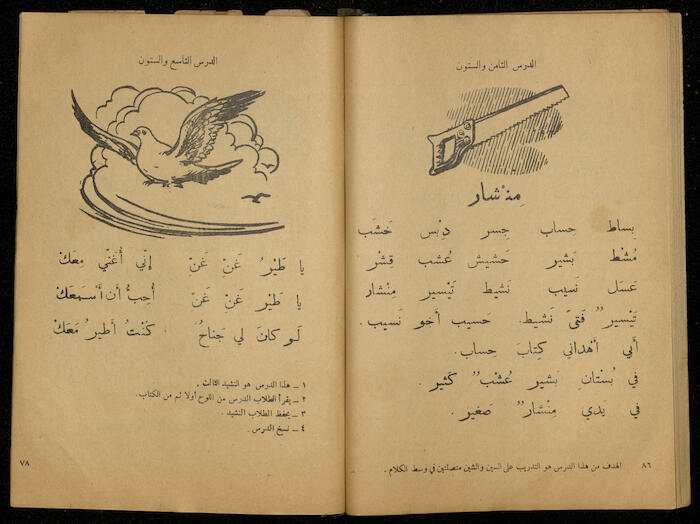 الدرس الثامن والستون
مِنْشار
بساط حِساب جِسر دِبْس خَشَب
مُشْط بَشير حَشيش عُشب قِشْر
عَسَل نَسيب نَشيط تَيْسير مِنْشار
تَيْسيرٌ فَتىً نَشيط. حَسيب أخو نَسيب.
أبي أهْداني كِتابَ حِساب.
في بُستانِ بَشير عُشْبٌ كَثير.
في يَدي مِنْشارٌ صَغير.
الهدف من هذا الدرس هو التدريب على السين والشين متصلتين في وسط الكلام.
٨٦
الدرس التاسع والستون
يا طَيْرُ غَنِّ غَنِّ إنّي أُغَنّي مَعَكْ
يا طَيْرُ غَنِّ غَنِّ أُحِبُّ أن أسْمَعَكْ
لَو كانَ لي جَناحُ كُنْتُ أطيرُ مَعَكْ
١ – هذا الدرس هو النشيد الثالث.
٢ – يقرأ الطلاب الدرس من اللوح أولا ثم من الكتاب.
٣ – يحفظ الطلاب النشيد.
٤ – نسخ الدرس.
٧٨